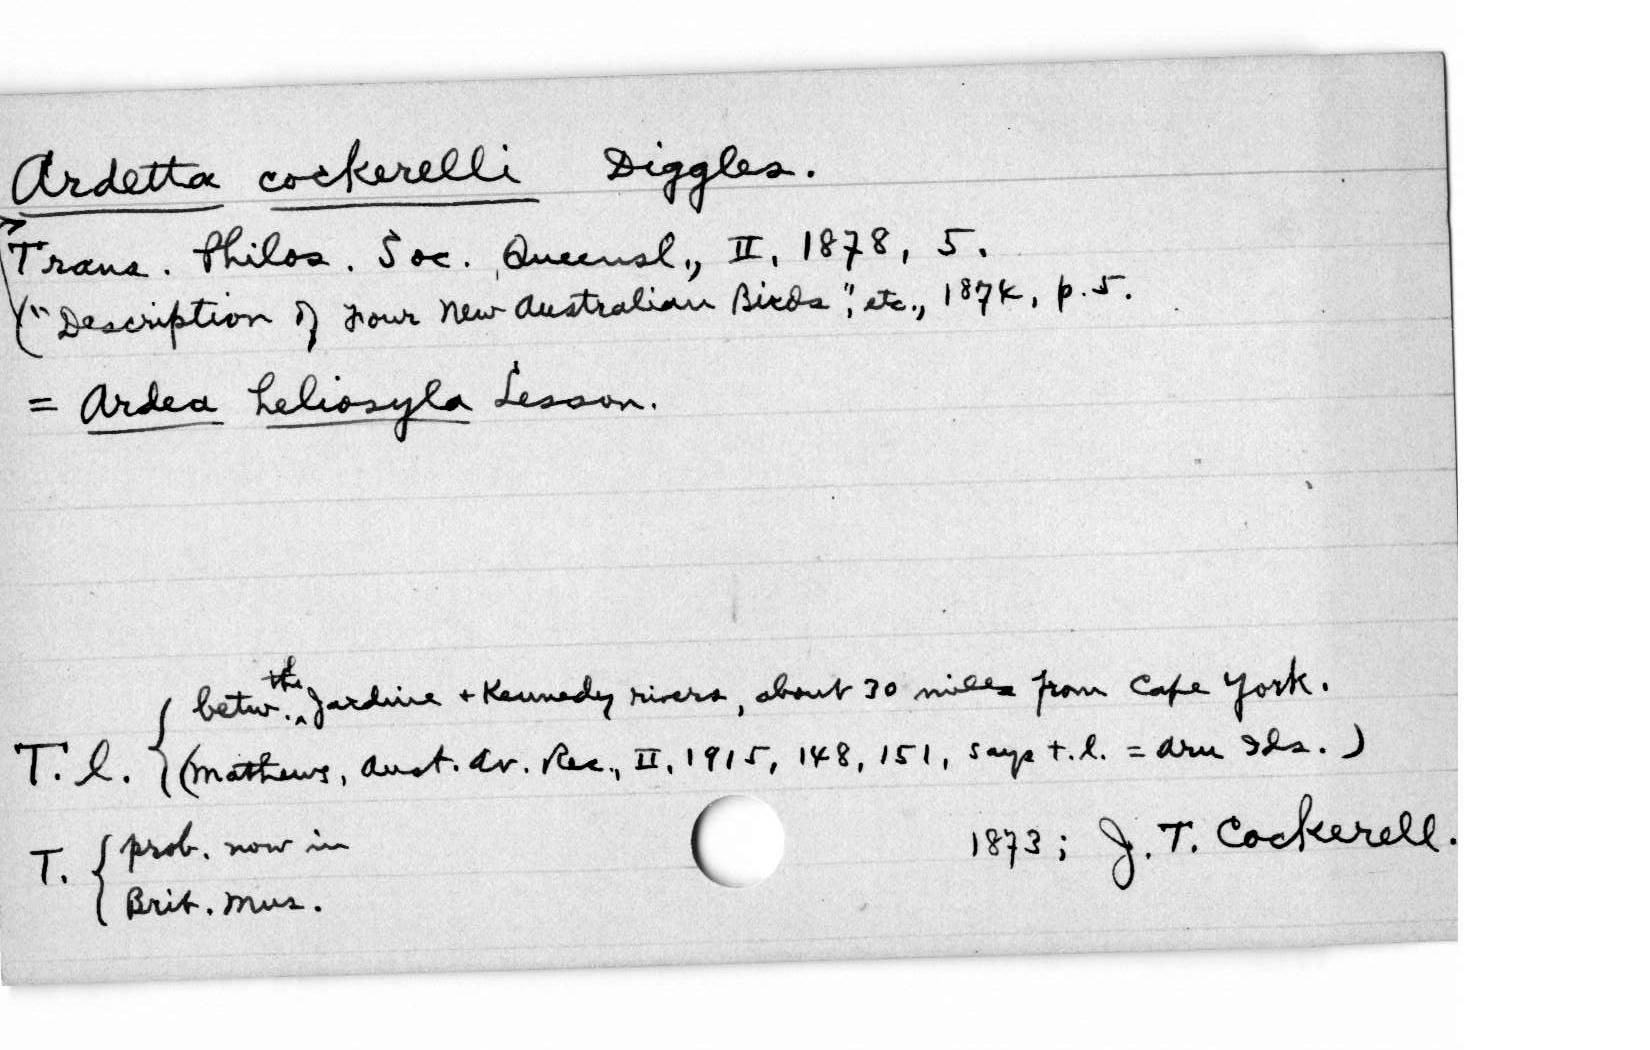 Ardetta cockerelli Diggles.
Trans. Philos. Soc. Queensl., II, 1878, 5.
("Description of Four New Australian Birds", etc., 1874, p.5.
= Ardea heliosyla Lesson.
betw. the Jardine + Kennedy rivers, about 30 miles from Cape York.
T.l. (Mathews, Aust. Av. Rec., II, 1915, 148, 151, says t.l. = Aru Ids.)
T. prob. now in
Brit. Mus.
1873; J. T. Cockerell.